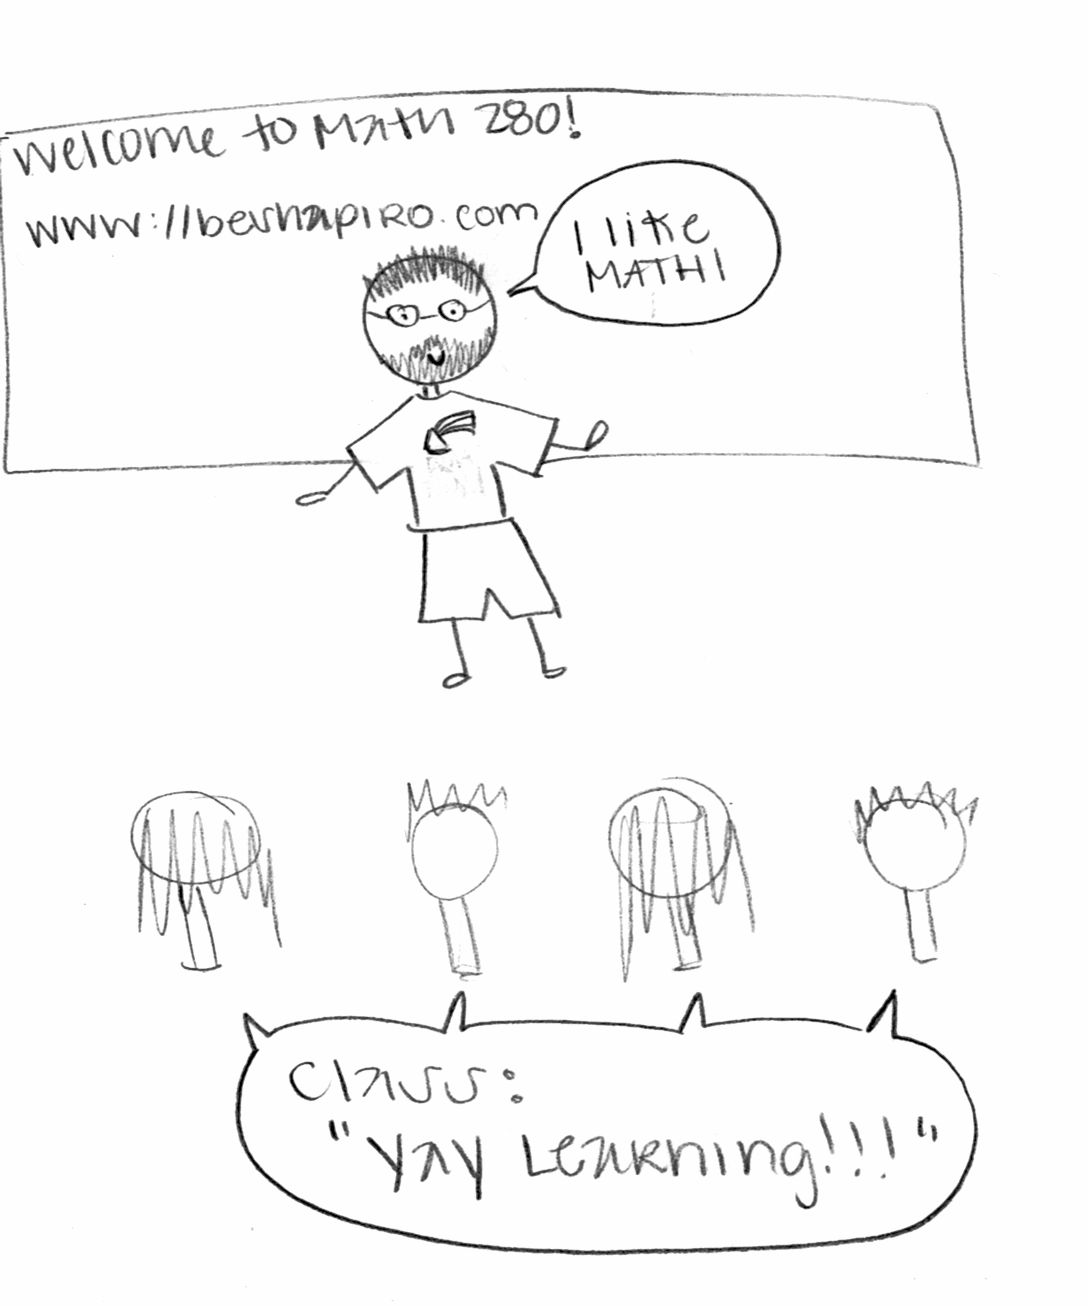 Welcome to Math 280!
www://beshapiro.com
I like
MATH!
Class:
"Yay Learning!!!"